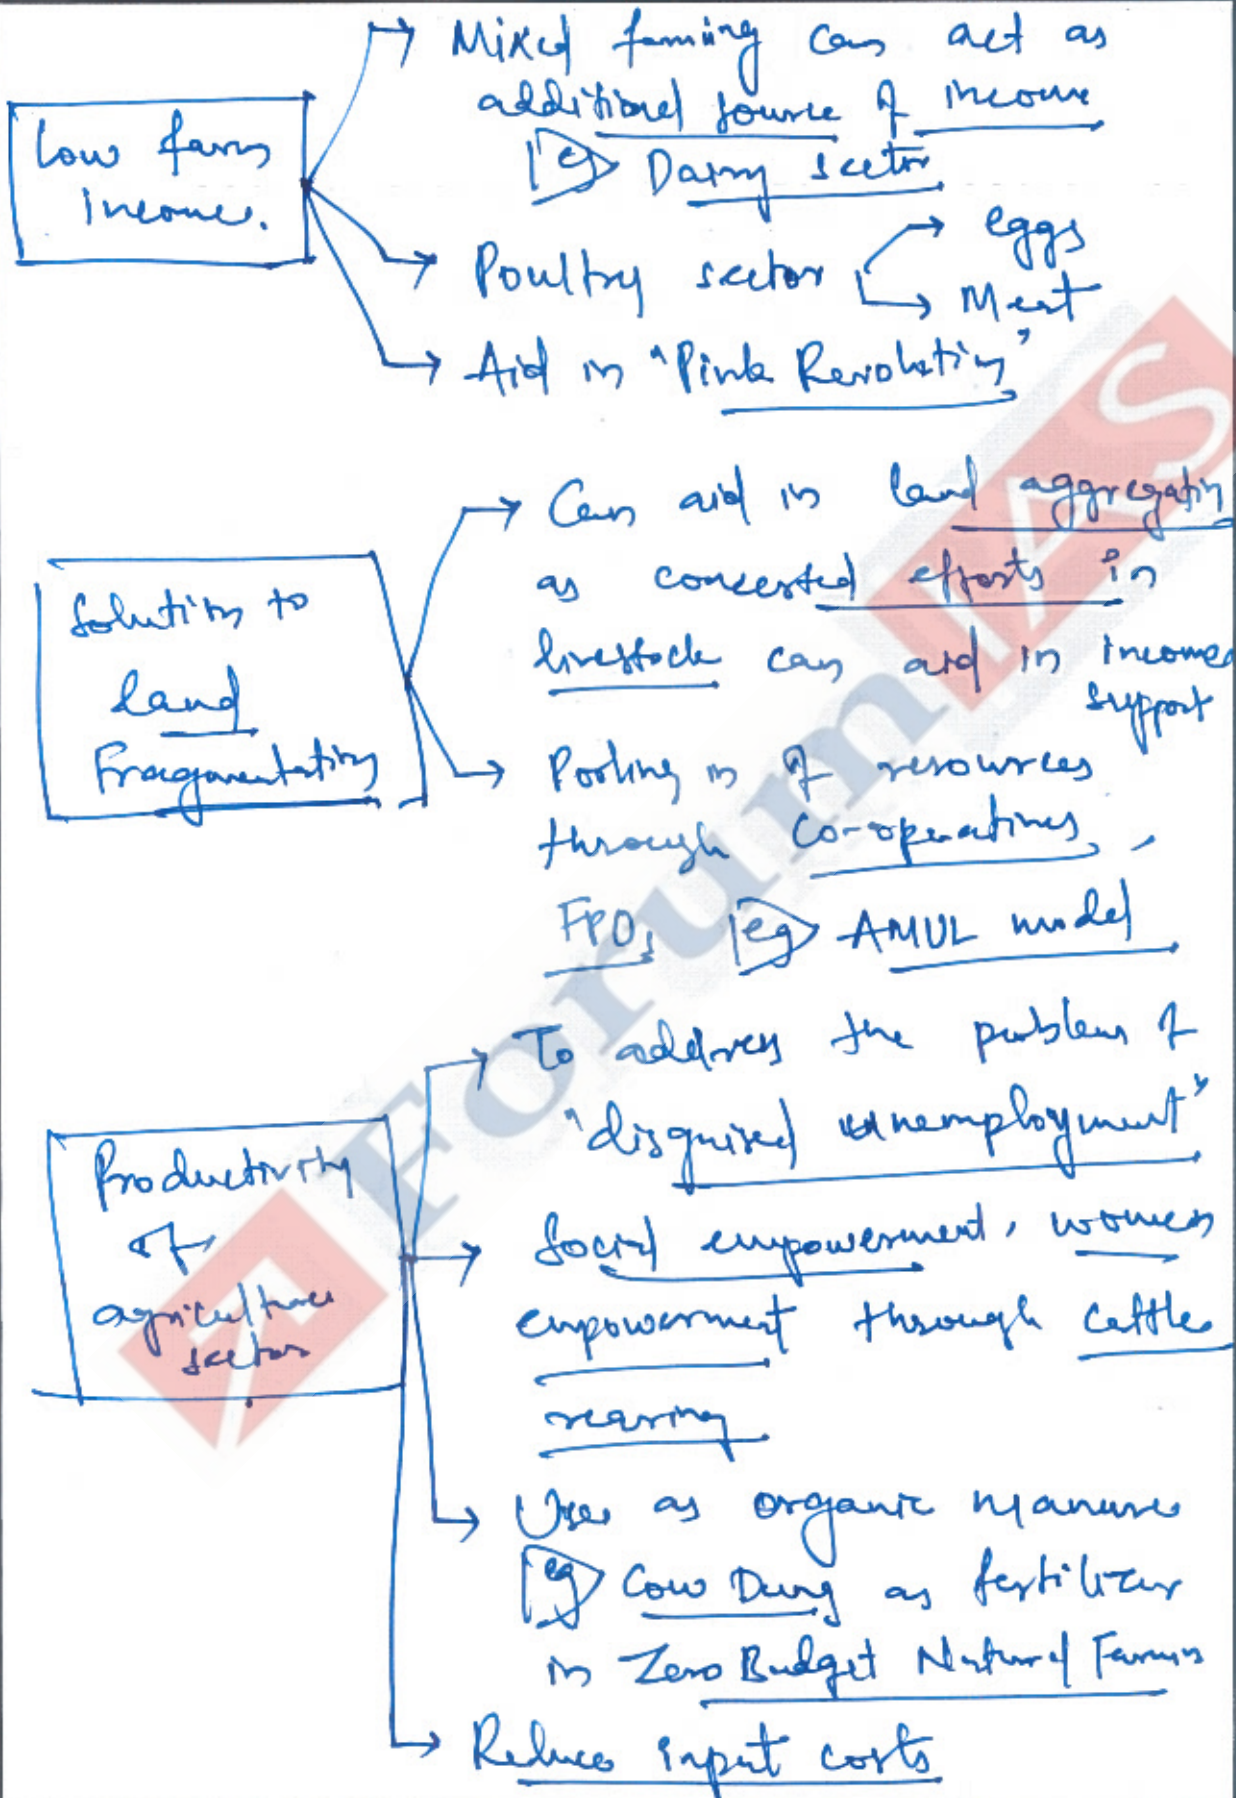 Low farm
income.
Mixed farming can act as
additional source of income
eg Dairy sector
Poultry sector
eggs
Meat
Aid in "Pink Revolution"
Solution to
land
Fragmentation
Can aid in land aggregation
as concerted efforts in
livestock can aid in income
support
Pooling in of resources
through Co-operatives,
FPOs eg AMUL model
Productivity
of
agriculture
sector
To address the problem of
"disguised unemployment"
Social empowerment, women
empowerment through cattle
rearing
Use as organic manure
eg Cow Dung as fertilizer
in Zero Budget Natural Farming
Reduce input costs
Forum IAS